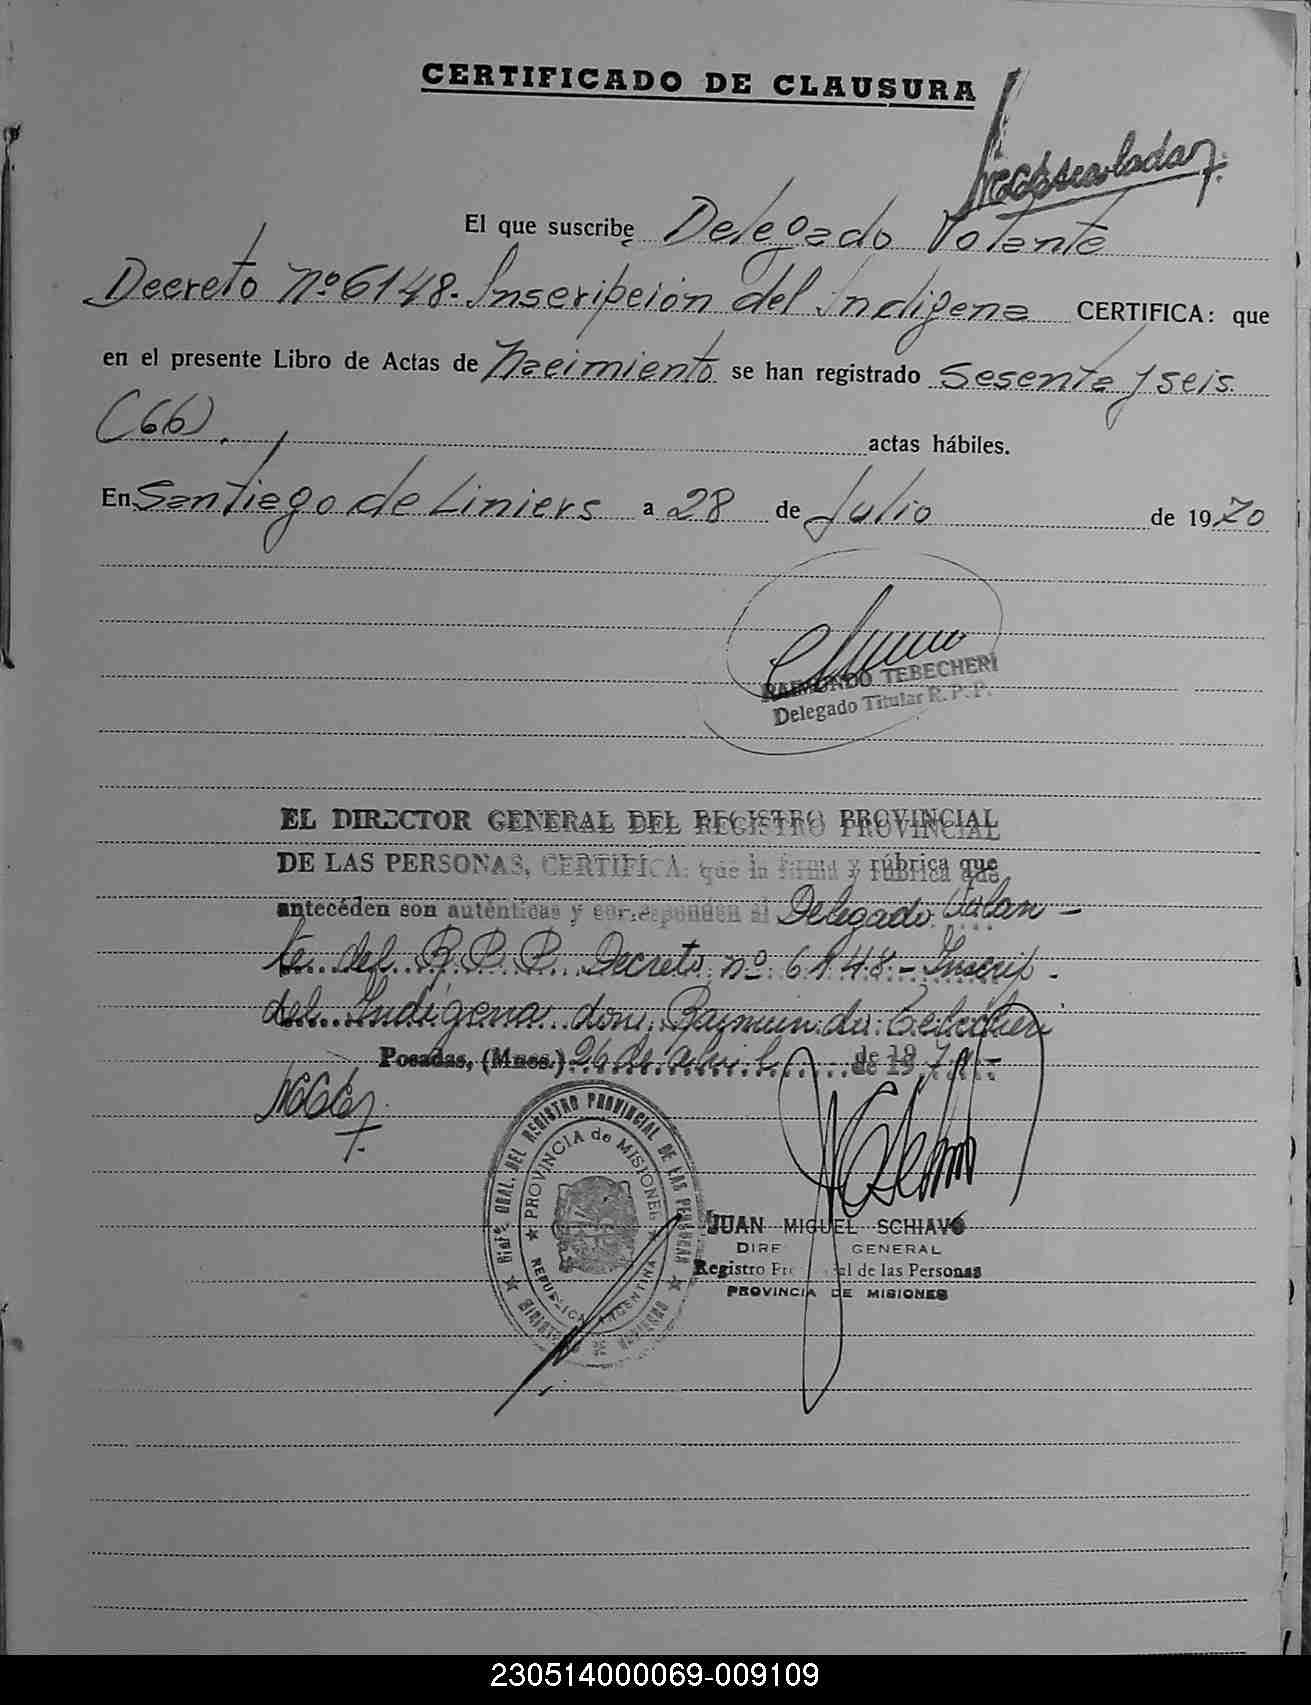 CERTIFICADO DE CLAUSURA
El que suscribe Delegado Volante
Decreto Nº 6148. Inscripción del Indígena CERTIFICA: que
en el presente Libro de Actas de Nacimiento se han registrado Sesenta y seis
(66). actas hábiles.
En Santiago de Liniers a 28 de Julio de 1970
RAIMUNDO TEBECHERI
Delegado Titular R. P. P.
EL DIRECTOR GENERAL DEL REGISTRO PROVINCIAL
DE LAS PERSONAS, CERTIFICA: que la firma y rúbrica que
antecéden son auténticas y corresponden al Delegado Volan-
te del R.P.P. Decreto nº 6148 - Inscrip.
del Indígena don Raymundo Tebecheri
Posadas, (Mnes.) 26 de abril de 197
DIREC. GRAL. DEL REGISTRO PROVINCIAL DE LAS PERSONAS
PROVINCIA de MISIONES
REPUBLICA ARGENTINA
JUAN MIGUEL SCHIAVO
DIRE GENERAL
Registro Pro al de las Personas
PROVINCIA DE MISIONES
230514000069-009109